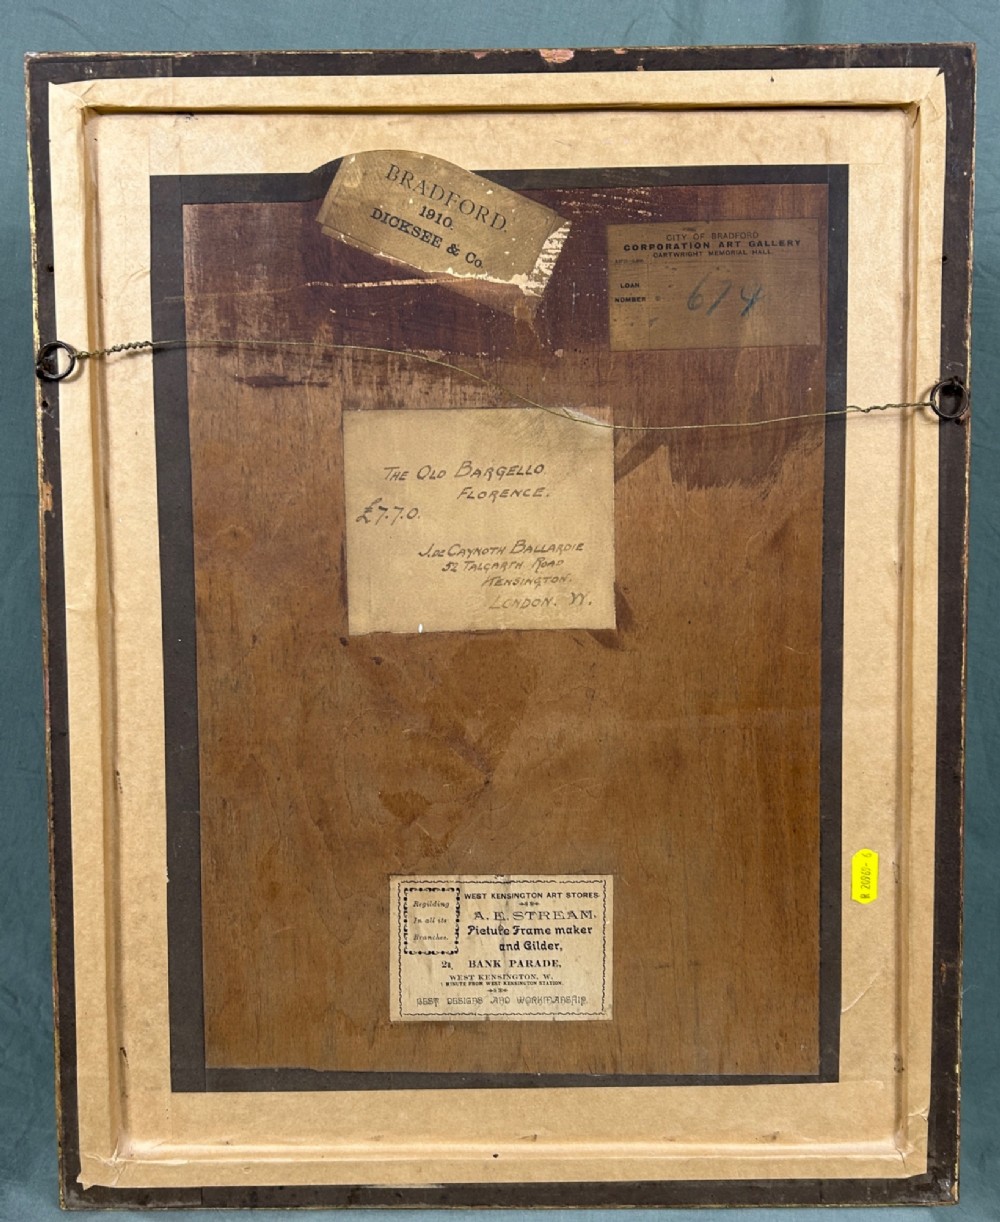 BRADFORD.
1910.
DICKSEE & Co.
CITY OF BRADFORD
CORPORATION ART GALLERY
CARTWRIGHT MEMORIAL HALL.
LOAN
NUMBER
614
THE OLD BARGELLO.
FLORENCE.
£7.7.0.
J. DE CAYNOTH BALLARDIE
52 TALGARTH ROAD
KENSINGTON.
LONDON. W.
Regilding
In all its
Branches.
WEST KENSINGTON ART STORES
A. E. STREAM,
Picture Frame maker
and Gilder,
21, BANK PARADE,
WEST KENSINGTON, W.
1 MINUTE FROM WEST KENSINGTON STATION.
BEST DESIGNS AND WORKMANSHIP.